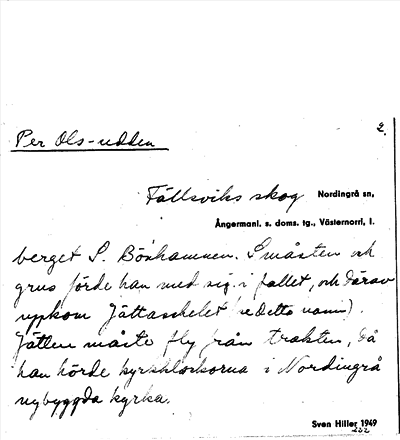 2.
Per Ols-udden
Fällsviks skog Nordingrå sn,
Ångermanl. s. doms. tg., Västernorrl. l.
berget S. Bönhamnen. Småsten och
grus förde han med sig i fallet, och därav
uppkom Jättaschelet (se detta namn).
Jätten måste fly från trakten, då
han hörde kyrkklockorna i Nordingrå
nybyggda kyrka.
Sven Hiller 1949
222